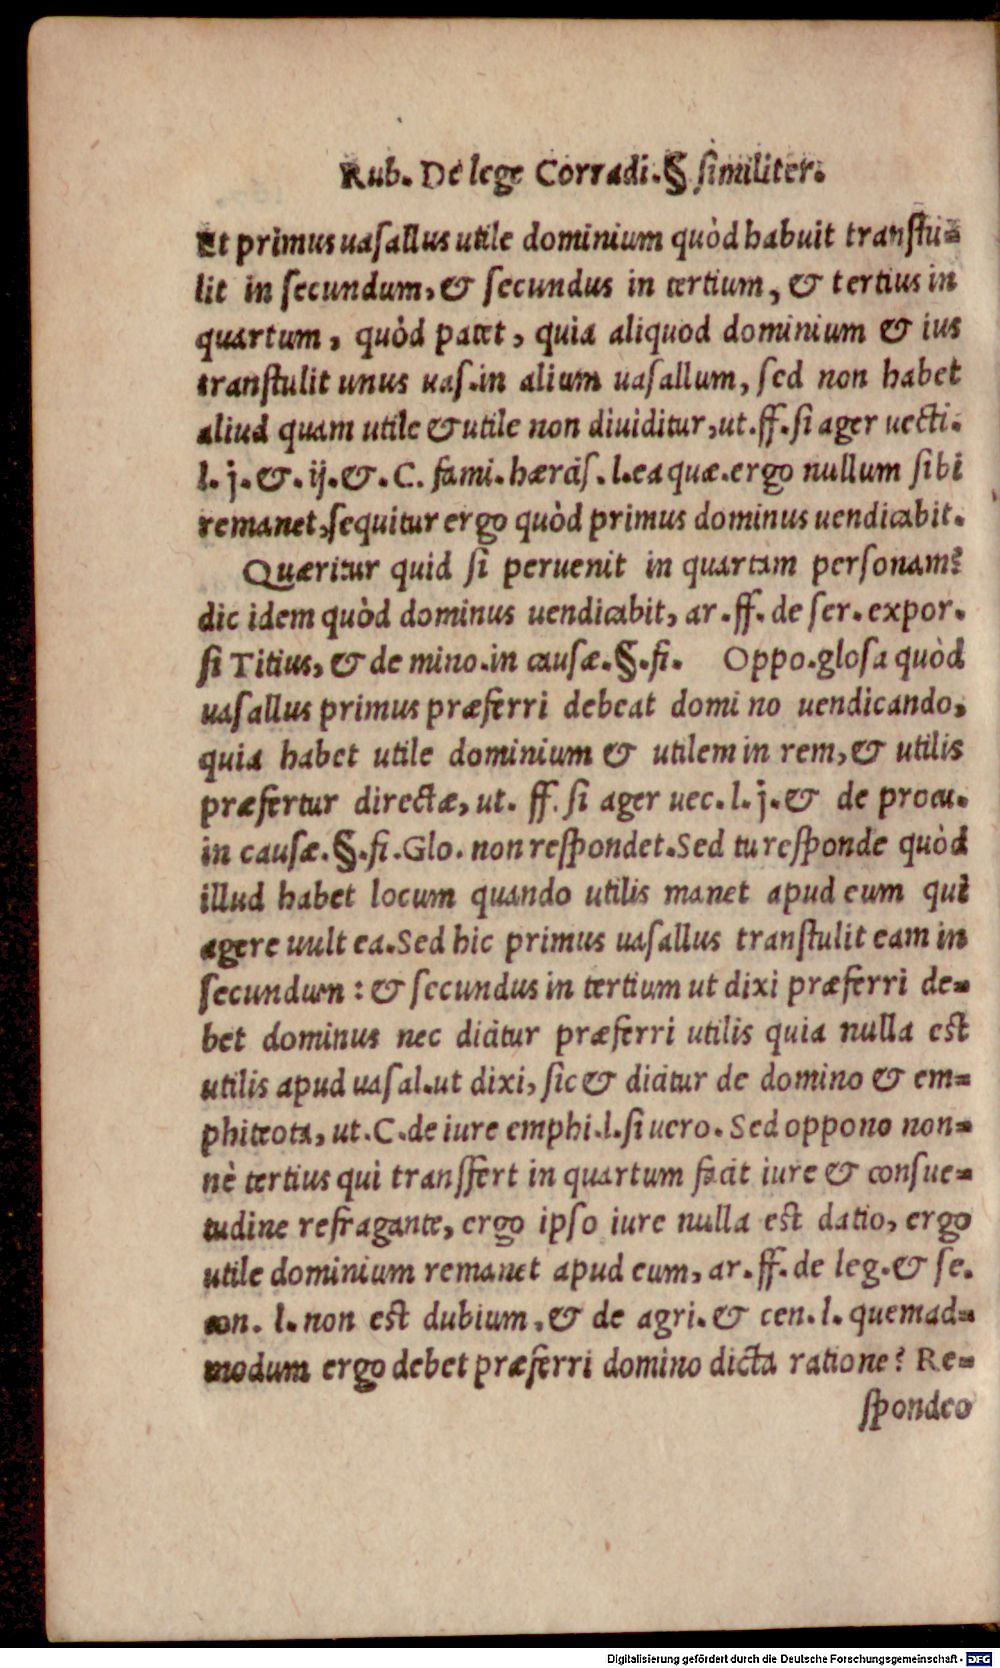 Rub. De lege Corradi. § similiter.
Et primus uasallus utile dominium quòd habuit transtu-
lit in secundum, & secundus in tertium, & tertius in
quartum, quòd patet, quia aliquod dominium & ius
transtulit unus uas. in alium uasallum, sed non habet
aliud quam utile & utile non diuiditur, ut. ff. si ager uecti.
l. j. &. ij. &. C. fami. hærcis. l. ea quæ. ergo nullum sibi
remanet, sequitur ergo quòd primus dominus uendicabit.
Quæritur quid si peruenit in quartam personam?
dic idem quòd dominus uendicabit, ar. ff. de ser. expor.
si Titius, & de mino. in causæ. §. fi. Oppo. glosa quòd
uasallus primus præferri debeat domino uendicando,
quia habet utile dominium & utilem in rem, & utilis
præfertur directæ, ut. ff. si ager uec. l. j. & de procu.
in causæ. §. fi. Glo. non respondet. Sed tu responde quòd
illud habet locum quando utilis manet apud eum qui
agere uult ea. Sed hic primus uasallus transtulit eam in
secundum: & secundus in tertium ut dixi præferri de-
bet dominus nec dicitur præferri utilis quia nulla est
utilis apud uasal. ut dixi, sic & dicitur de domino & em-
phiteota, ut. C. de iure emphi. l. si uero. Sed oppono non-
nè tertius qui transfert in quartum facit iure & consue-
tudine refragante, ergo ipso iure nulla est datio, ergo
utile dominium remanet apud eum, ar. ff. de leg. & se.
con. l. non est dubium, & de agri. & cen. l. quemad-
modum ergo debet præferri domino dicta ratione? Re-
spondeo
Digitalisierung gefördert durch die Deutsche Forschungsgemeinschaft - DFG